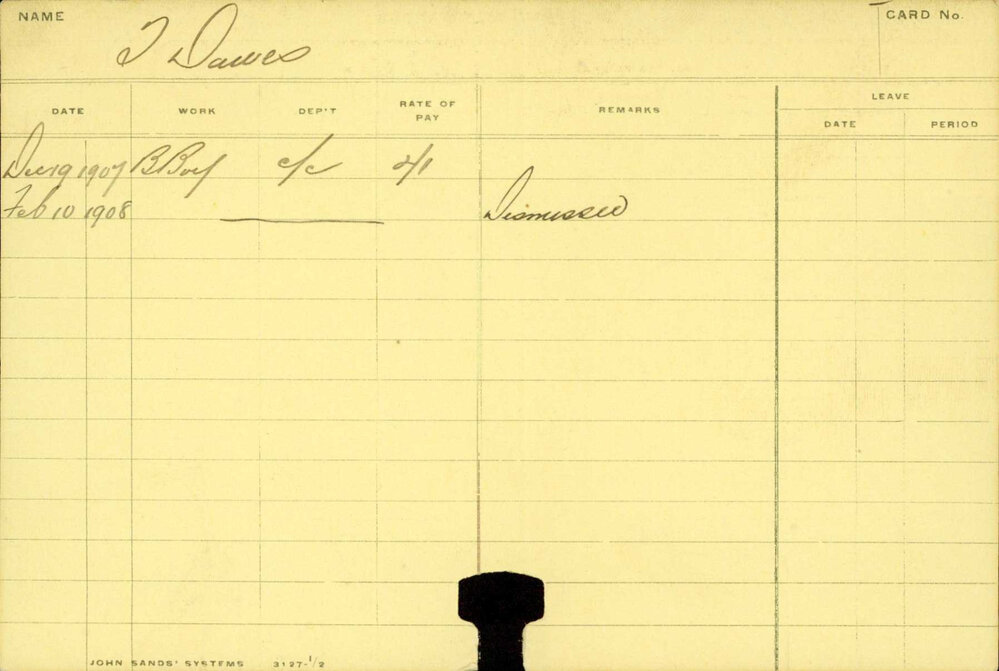 NAME
CARD No.
T Dawes
DATE WORK DEP'T RATE OF PAY REMARKS LEAVE
DATE PERIOD
Dec 19 1907 B Boy c/c 2/1
Feb 10 1908 Dismissed
JOHN SANDS' SYSTEMS 3127-1/2